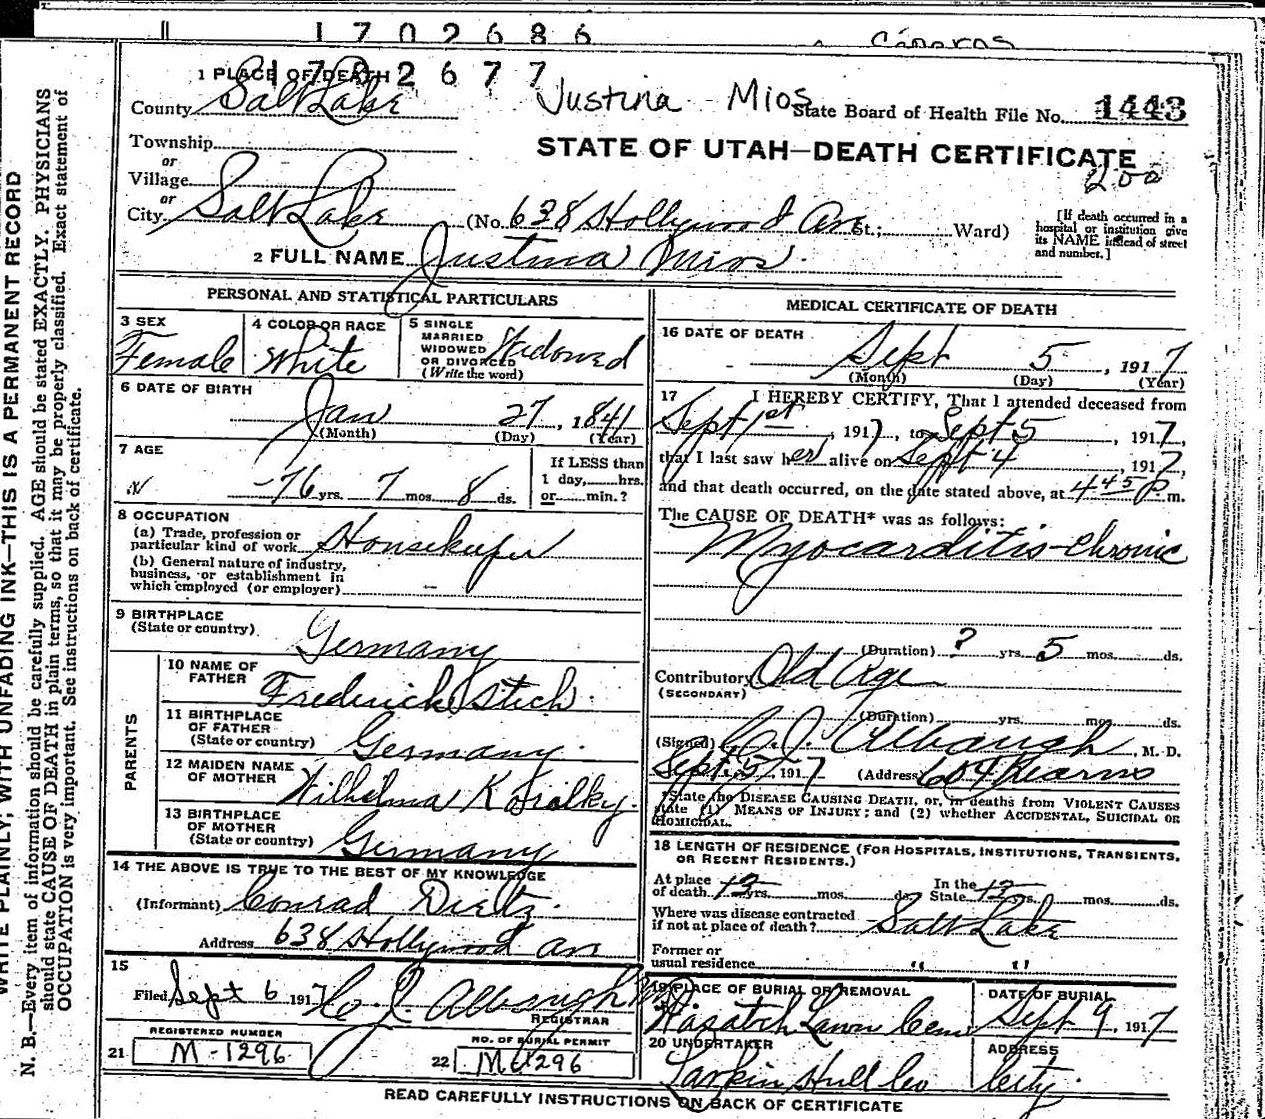 1702686
1702677
1 PLACE OF DEATH
County Salt Lake
Justina Mios
State Board of Health File No. 1443
Township
or
Village
or
City Salt Lake
STATE OF UTAH—DEATH CERTIFICATE
200
(No. 638 Hollywood Ave St.; Ward)
[If death occurred in a
hospital or institution give
its NAME instead of street
and number.]
2 FULL NAME Justina Mios.
PERSONAL AND STATISTICAL PARTICULARS
3 SEX
Female
4 COLOR OR RACE
White
5 SINGLE
MARRIED
WIDOWED
OR DIVORCED
(Write the word)
Widowed
6 DATE OF BIRTH
Jan 27, 1841
(Month) (Day) (Year)
7 AGE
76 yrs. 7 mos. 8 ds.
If LESS than
1 day, hrs.
or min.?
8 OCCUPATION
(a) Trade, profession or
particular kind of work Housekeeper
(b) General nature of industry,
business, or establishment in
which employed (or employer)
9 BIRTHPLACE
(State or country)
Germany
PARENTS
10 NAME OF
FATHER
Frederick Stich.
11 BIRTHPLACE
OF FATHER
(State or country)
Germany.
12 MAIDEN NAME
OF MOTHER
Wilhelma
13 BIRTHPLACE
OF MOTHER
(State or country)
Germany
14 THE ABOVE IS TRUE TO THE BEST OF MY KNOWLEDGE
(Informant) Conrad Dietz.
Address 638 Hollywood av
15
Filed Sept 6 1917 C. J. Albaugh
REGISTRAR
REGISTERED NUMBER
21 M-1296
NO. OF BURIAL PERMIT
22 M 1296
MEDICAL CERTIFICATE OF DEATH
16 DATE OF DEATH
Sept 5, 1917
(Month) (Day) (Year)
17 I HEREBY CERTIFY, That I attended deceased from
Sept 1st, 1917, to Sept 5, 1917,
that I last saw her alive on Sept 4, 1917,
and that death occurred, on the date stated above, at 4 45 P. m.
The CAUSE OF DEATH* was as follows:
Myocarditis-Chronic
(Duration) ? yrs. 5 mos. ds.
Contributory Old Age
(SECONDARY)
(Duration) yrs. mos. ds.
(Signed) C. J. Albaugh, M. D.
Sept 5, 1917 (Address) 604 Kearns
*State the DISEASE CAUSING DEATH, or, in deaths from VIOLENT CAUSES
state (1) MEANS OF INJURY; and (2) whether ACCIDENTAL, SUICIDAL OR
HOMICIDAL.
18 LENGTH OF RESIDENCE (FOR HOSPITALS, INSTITUTIONS, TRANSIENTS,
OR RECENT RESIDENTS.)
At place
of death yrs. mos. ds. In the
State yrs. mos. ds.
Where was disease contracted
if not at place of death? Salt Lake
Former or
usual residence " "
19 PLACE OF BURIAL OR REMOVAL
Wasatch Lawn Cem
DATE OF BURIAL
Sept 9, 1917
20 UNDERTAKER
Larkin Hull Co
ADDRESS
City.
READ CAREFULLY INSTRUCTIONS ON BACK OF CERTIFICATE
WRITE PLAINLY, WITH UNFADING INK—THIS IS A PERMANENT RECORD
N. B.—Every item of information should be carefully supplied. AGE should be stated EXACTLY. PHYSICIANS
should state CAUSE OF DEATH in plain terms, so that it may be properly classified. Exact statement of
OCCUPATION is very important. See instructions on back of certificate.